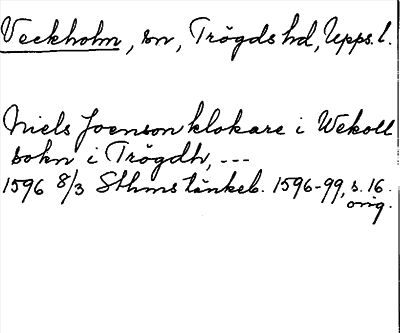 Veckholm, sn, Trögds hd, Upps. l.
Niels Joenson klokare i Wekoll
sokn i Trögdh, ---
1596 8/3 Sthms tänkeb. 1596-99, s. 16.
orig.